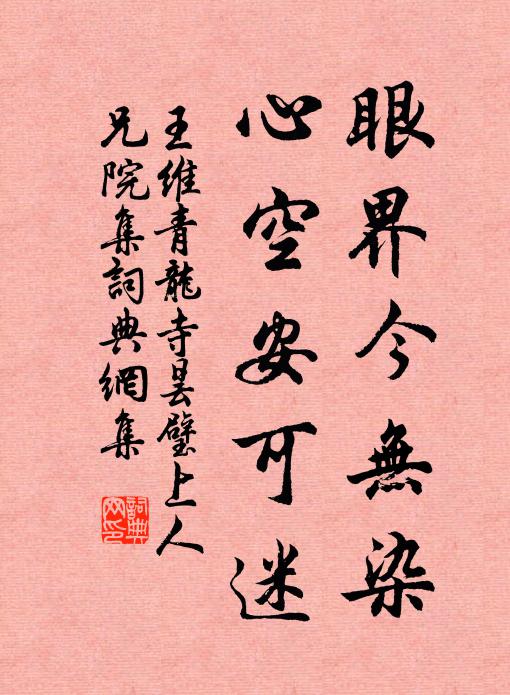 眼界今無染
心空安可迷
王維青龍寺曇璧上人
兄院集詞典網集
詞典
网印